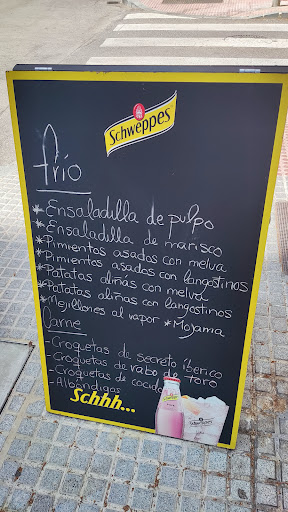 Schweppes
frío
* Ensaladilla de pulpo
* Ensaladilla de marisco
* Pimientos asados con melva
* Pimientos asados con langostinos
* Patatas aliñas con melva
* Patatas aliñas con langostinos
* Mejillones al vapor * Mojama
Carne
- Croquetas de secreto ibérico
- Croquetas de rabo de toro
- Croquetas de cocido
- Albóndigas
Schhh...